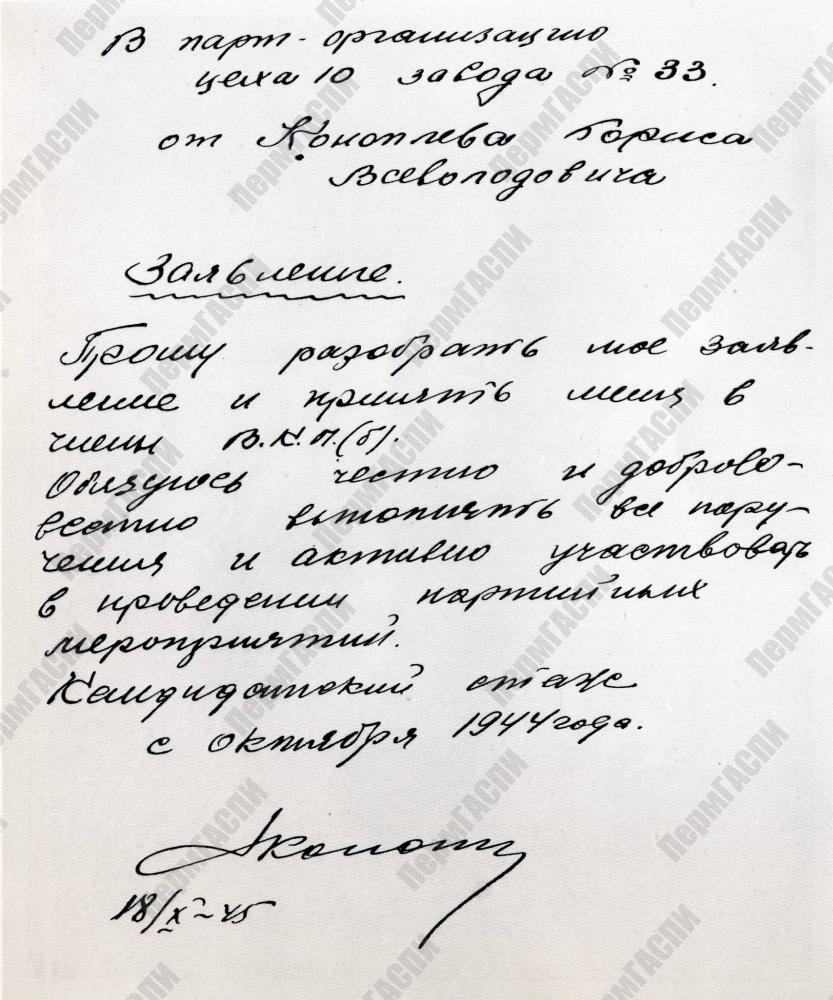 В парт-организацию
цеха 10 завода № 33.
от Коноплева Бориса
Всеволодовича
Заявление.
Прошу разобрать мое заяв-
ление и принять меня в
члены В.К.П.(б).
Обязуюсь честно и доброво-
вестно выполнять все пору-
чения и активно участвовать
в проведении партийных
мероприятий.
Кандидатский стаж
с октября 1944 года.
18/X-45
ПермГАСПИ